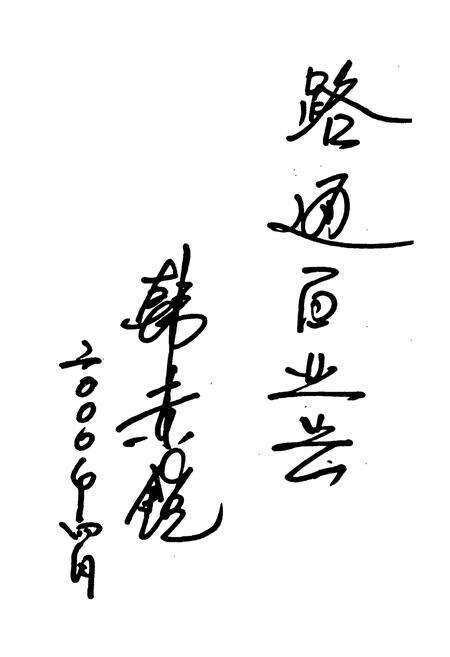 路通百业兴
韩
二〇〇〇年四月